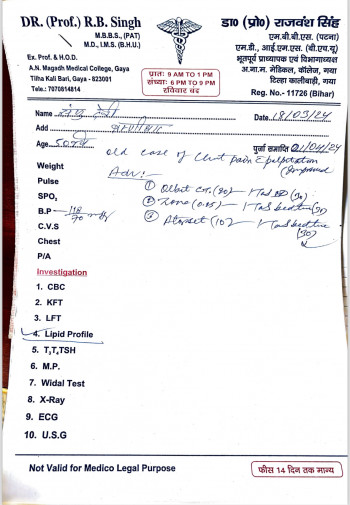 DR. (Prof.) R.B. Singh
M.B.B.S., (PAT)
M.D., I.M.S. (B.H.U.)
Ex. Prof. & H.O.D.
A.N. Magadh Medical College, Gaya
Tilha Kali Bari, Gaya - 823001
Tele.: 7070814814
प्रातः 9 AM TO 1 PM
संध्या: 6 PM TO 9 PM
रविवार बंद
डा० (प्रो०) राजवंश सिंह
एम.बी.बी.एस. (पटना)
एम.डी., आई.एम.एस. (बी.एच.यू.)
भूतपूर्व प्राध्यापक एवं विभागाध्यक्ष
अ.ना.म. मेडिकल, कॉलेज, गया
टिल्हा कालीबाड़ी, गया
Reg. No.- 11726 (Bihar)
Name देवी Date 18/03/24
Add
Age 50 पुर्जा समाप्ति 01/04/24
old case of Chest pain palpitation
Improved
Adv:-
Weight
Pulse
SPO₂
B.P 90
C.V.S
Chest
P/A
① (30) 1 Tab BD (30)
② 1 Tab bedtime
③ (10) 1 Tab bedtime
(30)
Investigation
1. CBC
2. KFT
3. LFT
4. Lipid Profile
5. T₃T₄TSH
6. M.P.
7. Widal Test
8. X-Ray
9. ECG
10. U.S.G
Not Valid for Medico Legal Purpose
फीस 14 दिन तक मान्य